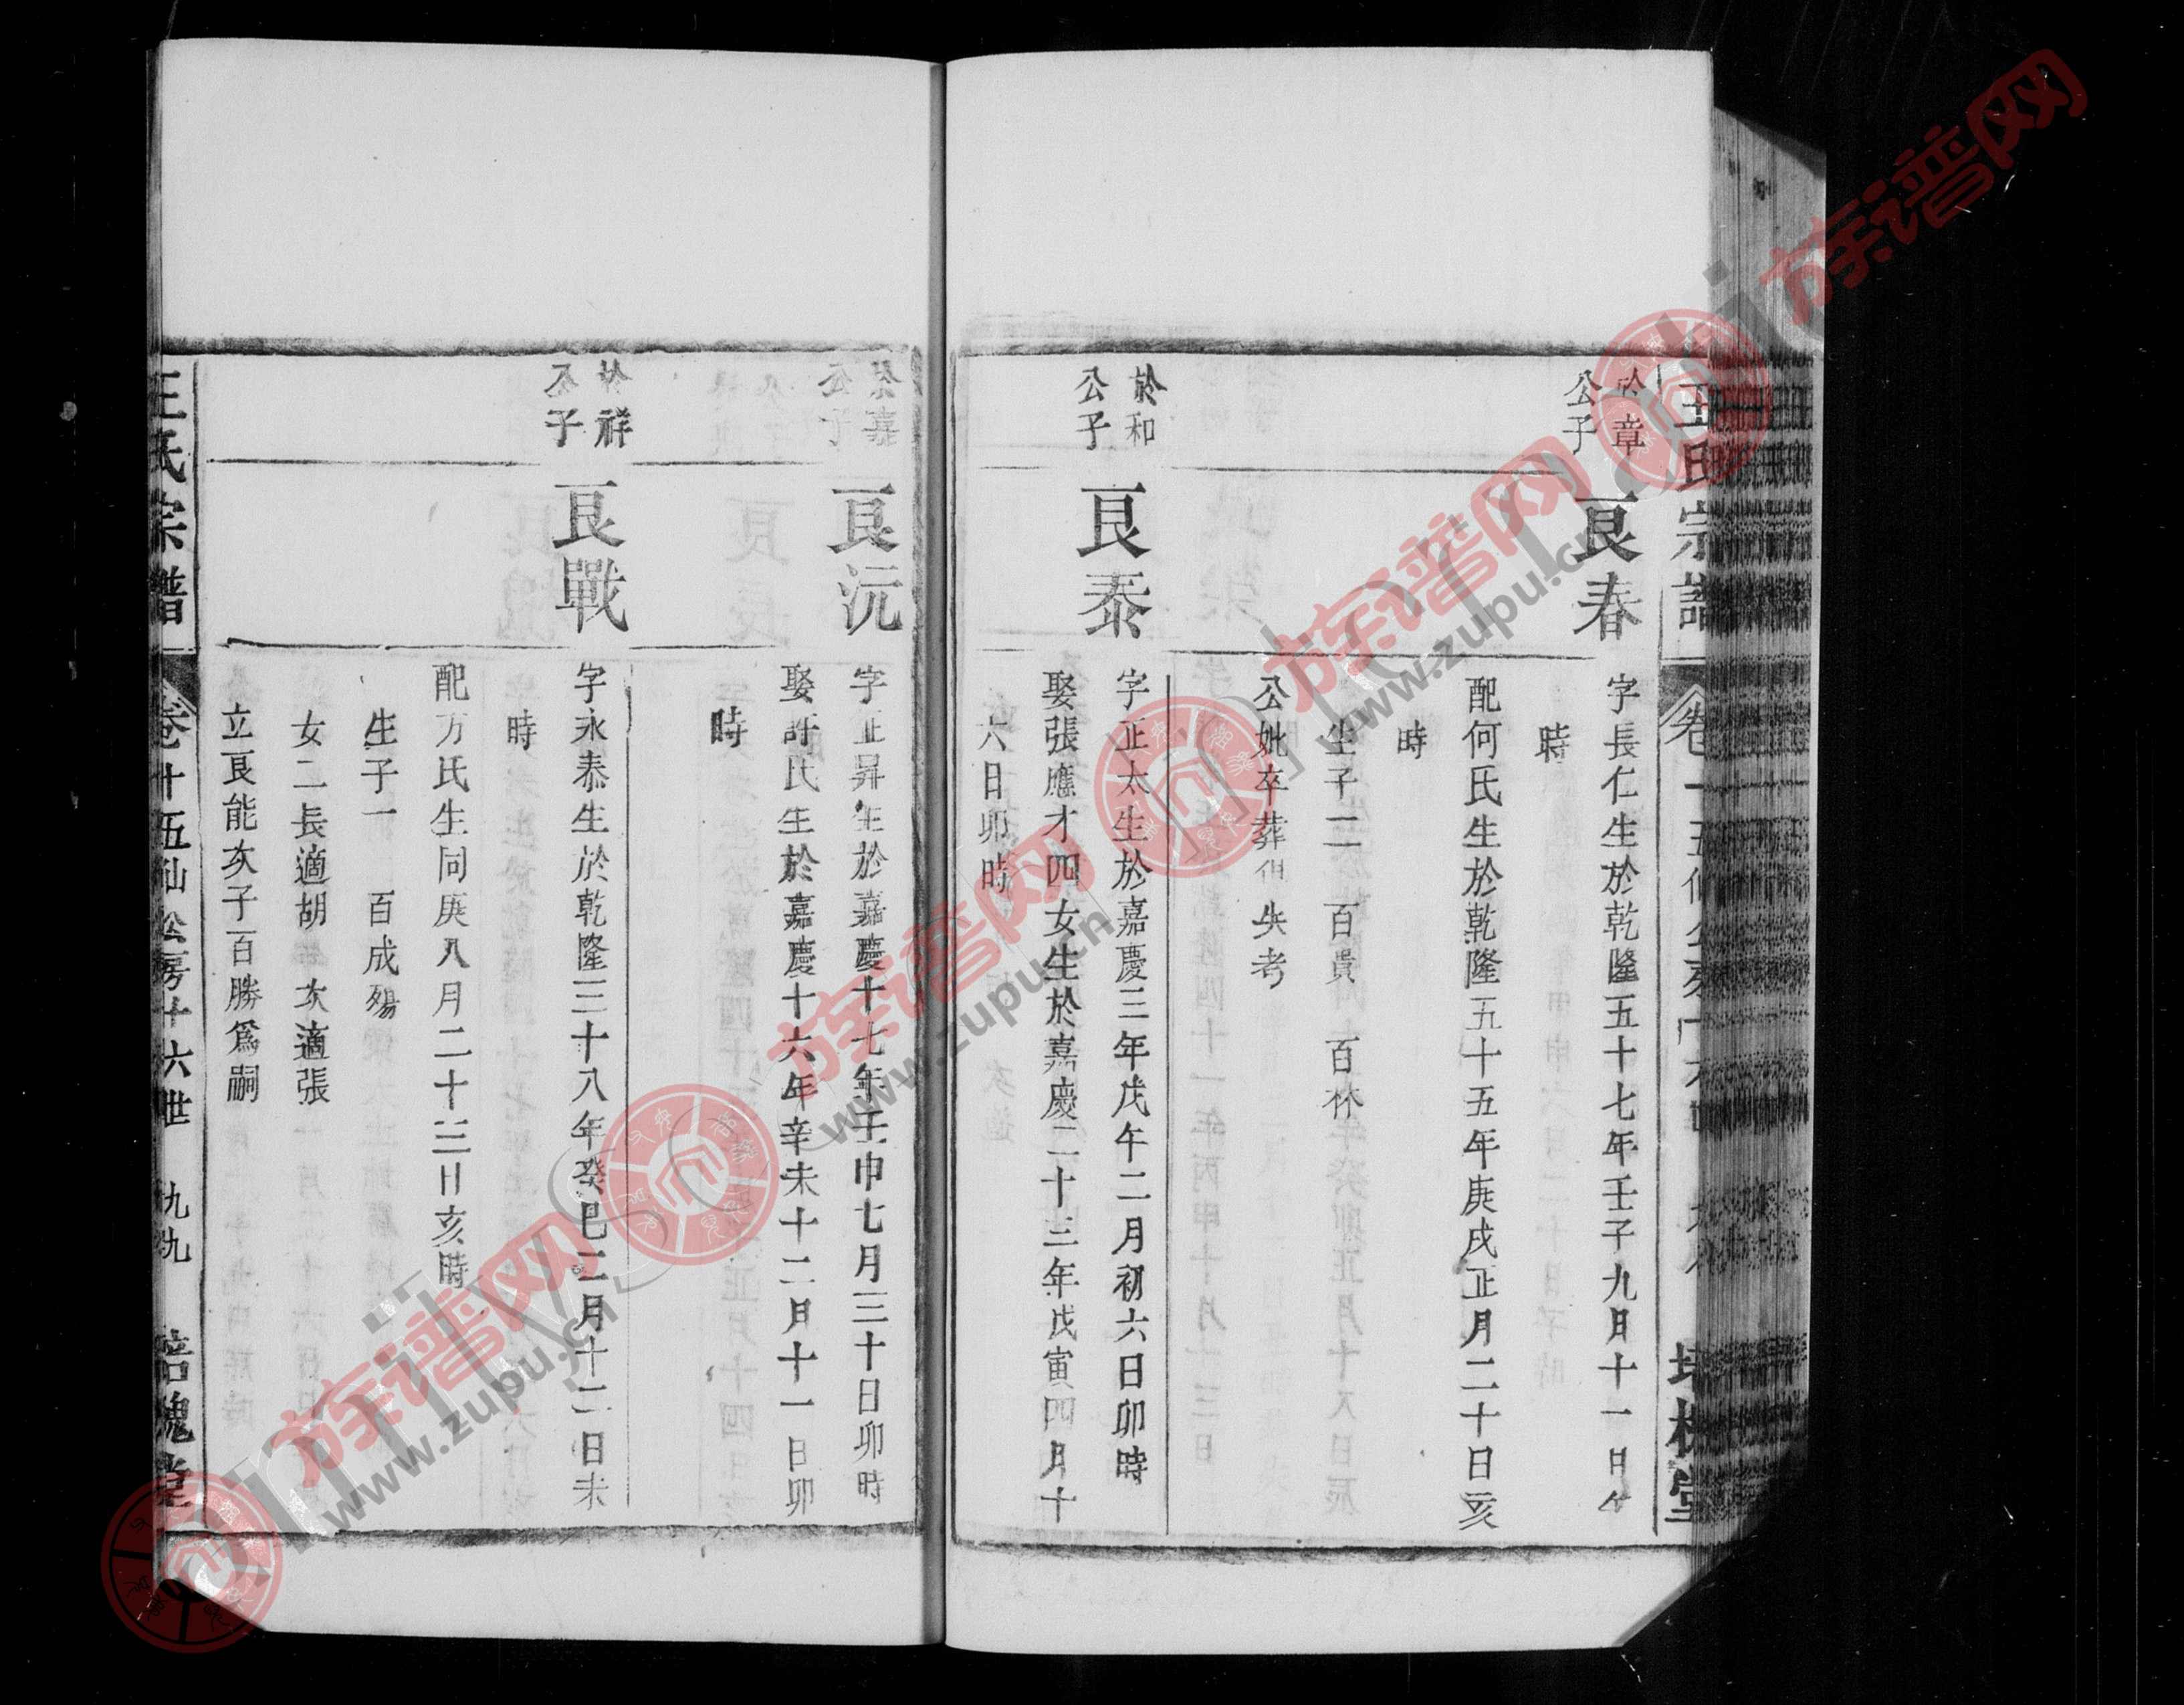 王氏宗譜
於章
公子
良春
字長仁生於乾隆五十七年壬子九月十一日午
時
配何氏生於乾隆五十五年庚戌正月二十日亥
時
生子二 百貴 百林
公妣卒葬俱失考
於和
公子
良泰
字正太生於嘉慶三年戊午二月初六日卯時
娶張應才四女生於嘉慶二十三年戊寅四月十
六日卯時
於嘉
公子
良沅
字正昇生於嘉慶十七年壬申七月三十日卯時
娶許氏生於嘉慶十六年辛未十二月十一日卯
時
於祥
公子
良戰
字永泰生於乾隆三十八年癸巳二月十二日未
時
配方氏生同庚八月二十三日亥時
生子一 百成殤
女二長適胡 次適張
立良能次子百勝爲嗣
王氏宗譜
卷十五仙公房十六世 九九
培槐堂
族谱网
www.zupu.cn
族谱网
www.zupu.cn
族谱网
www.zupu.cn
族谱网